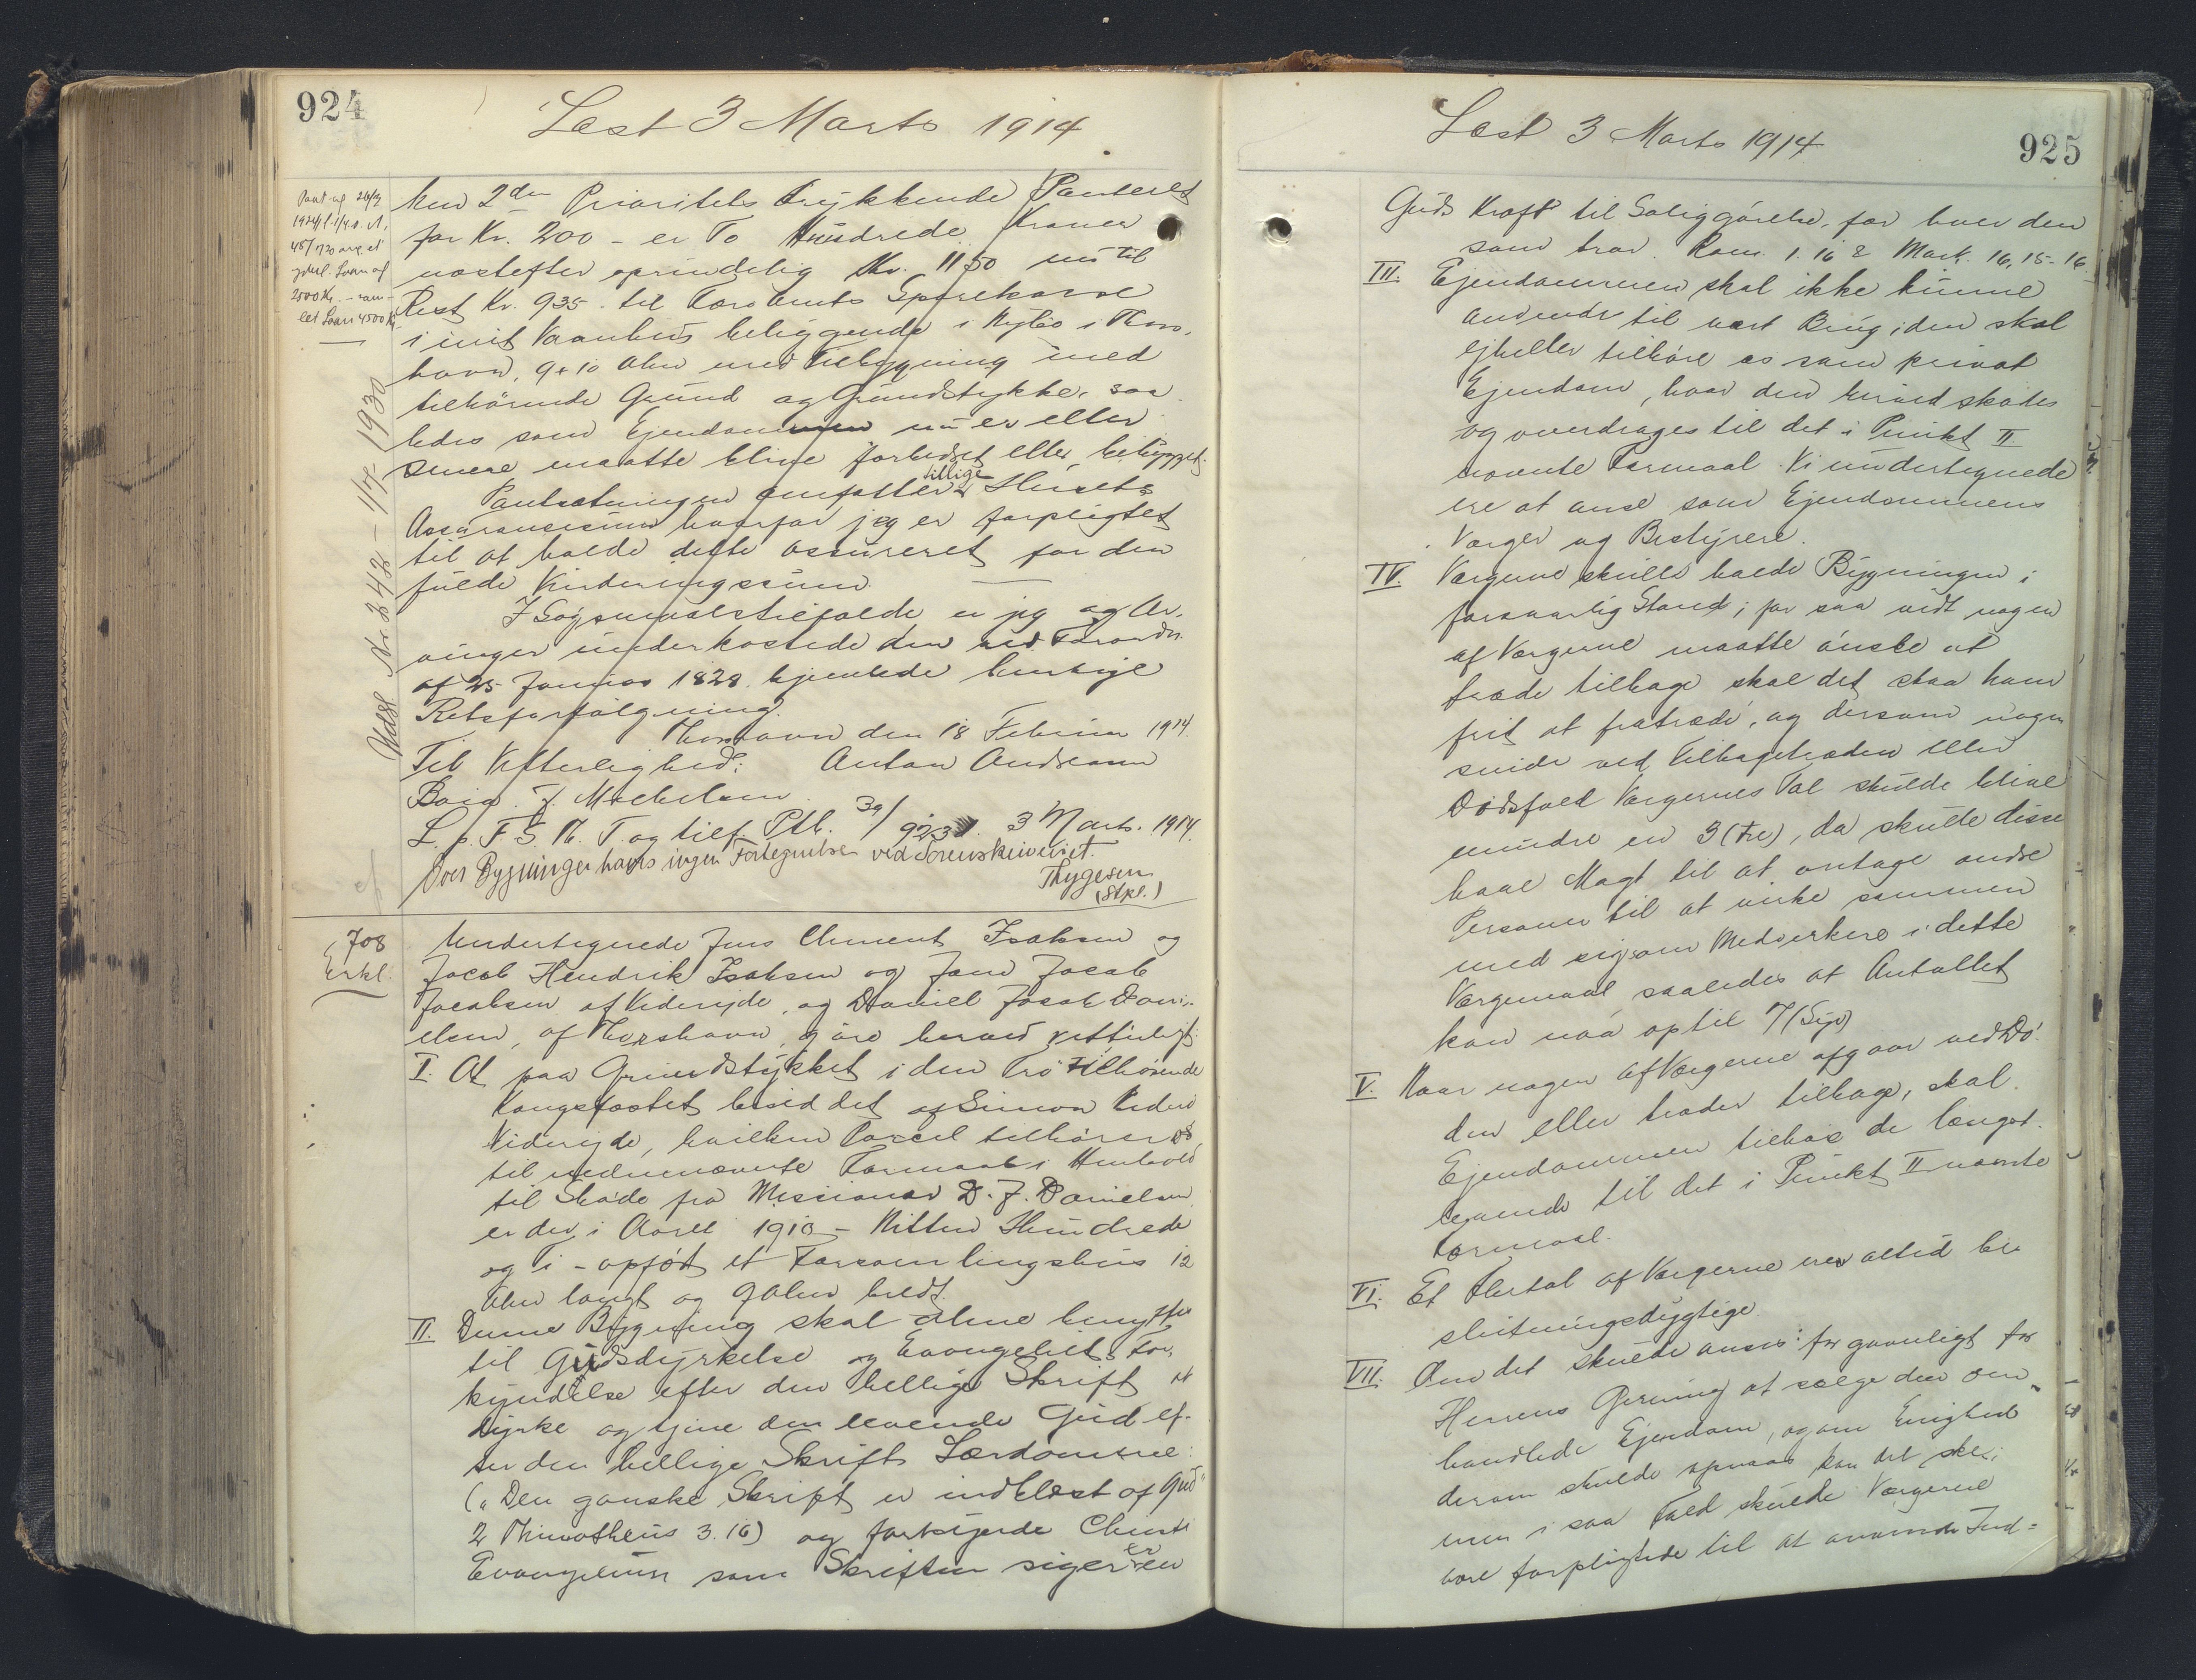 924
Læst 3 Marts 1914
Pant og 26/9
2500 Kr.
let Laan 4500 Kr
Udsl. Nr 342 - 1/7 1930
2den Prioritets trykkende Panteret
for Kr. 200 - er To Hundrede Kroner
næstefter oprindelig Kr. 1150 nu til
Rest Kr. 935 til Færø Amts Sparekasse
i mit Vaanhus beliggende i Nybø i Thors-
havn, 9 + 10 Alen med Tilbygning med
tilhørende Grund og Grundstykke, saa
ledes som Ejendommen nu er eller
senere maatte blive forbedret eller bebygget.
Pantsætningen omfatter tillige Husets
Assurancesum hvorfor jeg er forpligtet
til at holde dette assureret for den
fulde Vurderingssum.
I Søgsmaalstilfælde er jeg og Ar-
vinger underkastede den ved Forordn.
af 25 Januar 1828 hjemlede hurtige
Retsforfølgning.
Thorshavn den 18 Februar 1914.
Til Vitterlighed: Anton Andreasen
J. Michelsen
L. p. F. S. Th. T. og tilf. Ptb. 39/923. 3 Marts. 1914.
Over Bygninger haves ingen Fortegnelse ved Sorenskriveriet.
Thygesen
(Stpl.)
708
Erkl.
Undertegnede Jens Clement Isaksen og
Jacob Hendrik Isaksen og Jens Jacob
Jacobsen af Viderejde, og Daniel Jacob Dani-
elsen, af Thorshavn, gøre herved vitterligt:
I. At paa Grundstykket i den tilhørende
Kongsfæstet ved det af Simon
Videreide, hvilken Parcel tilhører os
til nedennævnte Formaal i Henhold
til Skøde fra Missionær D. J. Danielsen
er der i Aaret 1910 - Nitten Hundrede
og ti - opført et Forsamlingshus 12
Alen langt og 9 Alen bredt.
II. Denne Bygning skal alene benyttes
til Gudsdyrkelse og Evangeliets For-
kyndelse efter den hellige Skrift at
Dyrke og tjene den levende Gud ef-
ter den hellige Skrifts Lærdomme:
("Den ganske Skrift er indblæst af Gud"
2 Thimotheus 3.16) og forkynde Christi
Evangelium som Skriften siger er en
Læst 3 Marts 1914
925
Guds Kraft til Saliggørelse, for hver den
som tror. Rom. 1. 16 & Mark. 16, 15-16.
III. Ejendommen skal ikke kunne
anvendes til vort Brug iden skal
ejheller tilhøre os som privat
Ejendom, hvor den herved skødes
og overdrages til det i Punkt II
nævnte Formaal. Vi undertegnede
ere at anse som Ejendommens
Værger og Bestyrere.
IV. Værgerne skulle holde Bygningen i
forsvarlig Stand; for saa vidt nogen
af Værgerne maatte ønske at
træde tilbage skal det staa ham
frit at fratræde, og dersom nogen
sinde ved Tilbagetræden eller
Dødsfald Værgernes Tal skulde blive
mindre en 3 (tre), da skulle disse
have Magt til at antage andre
Personer til at virke sammen
med sig som Medværkere i dette
Værgemaal saaledes at Antallet
kan naa op til 7 (Syv)
V. Naar nogen af Værgerne afgaar ved Dø-
den eller træder tilbage, skal
Ejendommen tilhøre de længst-
levende til det i Punkt II nævnte
Formaal.
VI. Et Flertal af Værgerne ere altid be
slutningsdygtige.
VII. Om det skulde anses for gavnligt for
Herrens Gerning at sælge den om-
handlede Ejendom, og om Enighed
derom skulde opnaas kan det ske;
men i saa Fald skulde Værgerne
være forpligtede til at anvende Ind=